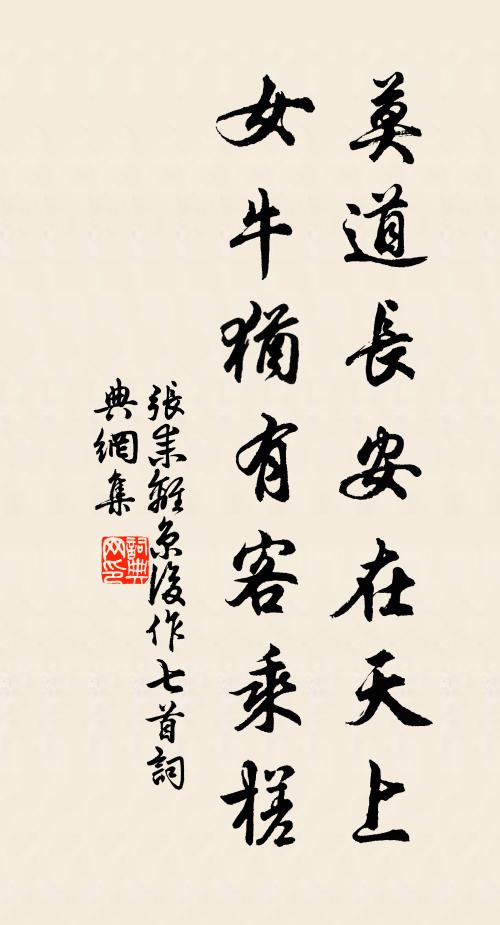 莫道長安在天上
女牛猶有客乘槎
張耒離京後作七首詞
典網集
詞典网印